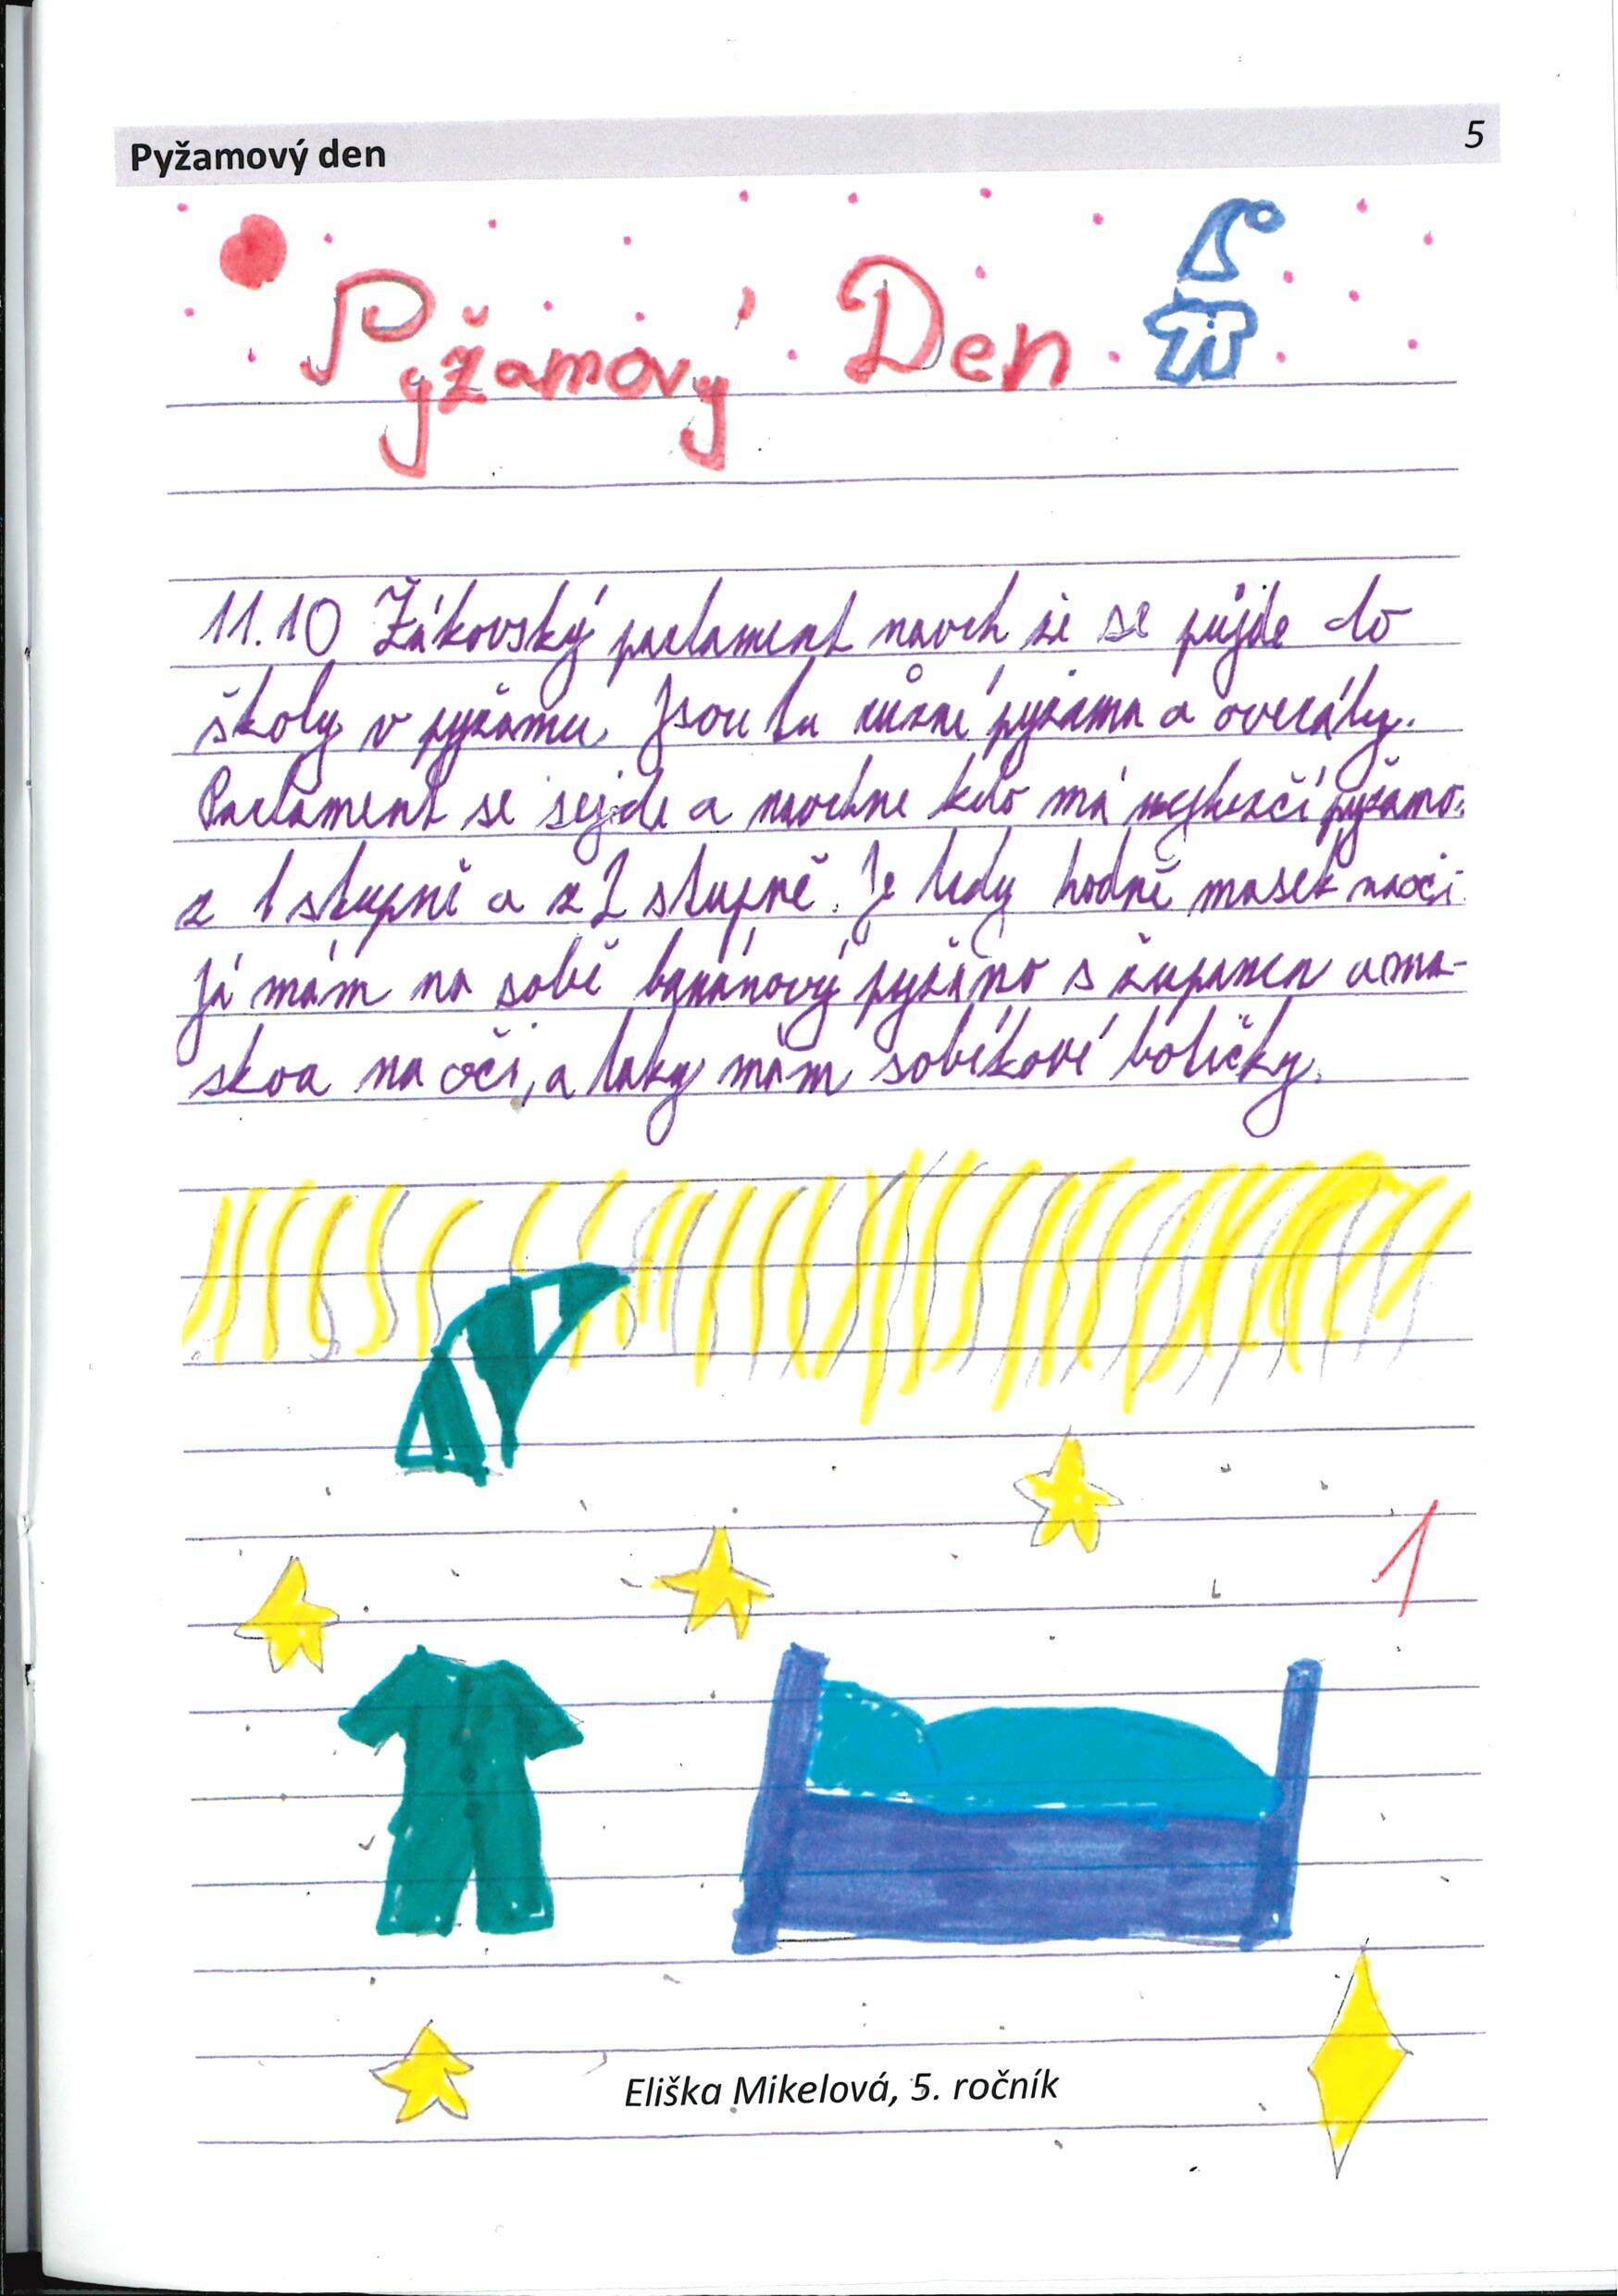 Pyžamový den 5
Pyžamový Den
11.10 Žákovský parlament navrh že se půjde do
školy v pyžamu. Jsou tu různé pyžama a overály.
Parlament se sejde a navrhne kdo má nejhezčí pyžamo.
z 1 stupně a z 2 stupně. Je tedy hodně masek na oči.
Já mám na sobě banánový pyžamo s županem a ma-
skoa na oči, a taky mám sobíkové botičky.
1
Eliška Mikelová, 5. ročník